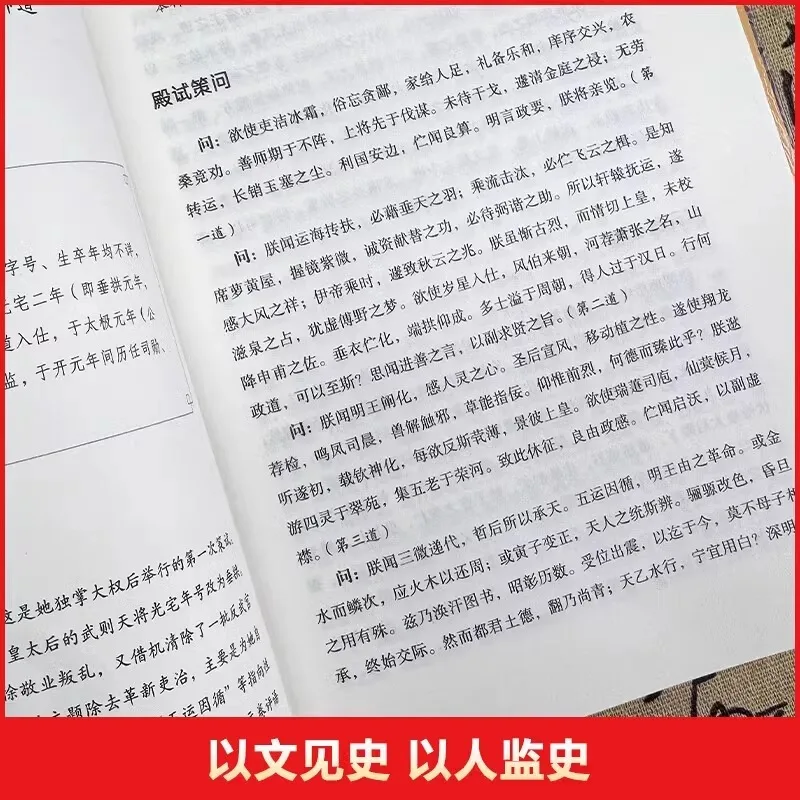 字号、生卒年均不详，
元宅二年（即垂拱元年，
道入仕，于太极元年（公
监，于开元年间历任司勋、
这是她独掌大权后举行的第一次策试，
皇太后的武则天将光宅年号改为垂拱，
徐敬业叛乱，又借机清除了一批反武官
主题除去革新吏治，主要是为她自
五运因循”等指向该
殿试策问
问：欲使吏洁冰霜，俗忘贪鄙，家给人足，礼备乐和，庠序交兴，农
桑竞劝。善师期于不阵，上将先于伐谋。未待干戈，遽清金庭之祲；无劳
转运，长销玉塞之尘。利国安边，伫闻良算。明言政要，朕将亲览。（第
一道）
问：朕闻运海抟扶，必藉垂天之羽；乘流击汰，必伫飞云之楫。是知
席萝黄屋，握镜紫微，诚资献替之功，必待弼谐之助。所以轩辕抚运，遂
感大风之祥；伊帝乘时，遂致秋云之兆。朕虽惭古烈，而情切上皇，未校
滋泉之占，犹虚傅野之梦。欲使岁星入仕，风伯来朝，河荐萧张之名，山
降申甫之佐。垂衣伫化，端拱仰成。多士溢于周朝，得人过于汉日。行何
政道，可以至斯？思闻进善之言，以副求贤之旨。（第二道）
问：朕闻明王阐化，感人灵之心。圣后宣风，移动植之性。遂使翔龙
荐检，鸣凤司晨，兽解触邪，草能指佞。仰惟前烈，何德而臻此乎？朕逖
听遂初，载钦神化，每欲反斯茕薄，景彼上皇。欲使瑞萐司庖，仙蓂候月，
游四灵于翠苑，集五老于荣河。致此休征，良由政感。伫闻启沃，以副虚
襟。（第三道）
问：朕闻三微递代，哲后所以承天。五运因循，明王由之革命。或金
水而鳞次，应火木以还周；或寅子变正，天人之统斯辨。骊騵改色，昏旦
之用有殊。兹乃涣汗图书，昭彰历数。受位出震，以迄于今，莫不母子相
承，终始交际。然而都君土德，翻乃尚青；天乙水行，宁宜用白？深明
以文见史 以人监史